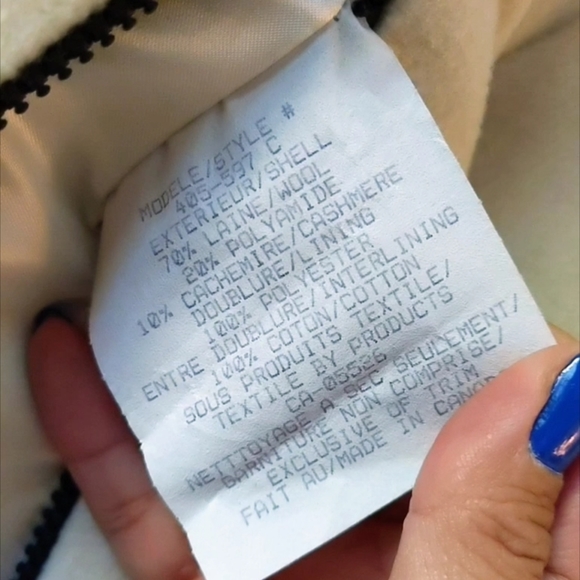 MODELE/STYLE #
405-597 C
EXTERIEUR/SHELL
70% LAINE/WOOL
20% POLYAMIDE
10% CACHEMIRE/CASHMERE
DOUBLURE/LINING
100% POLYESTER
ENTRE DOUBLURE/INTERLINING
100% COTON/COTTON
SOUS PRODUITS TEXTILE/
TEXTILE BY PRODUCTS
CA 05526
NETTOYAGE A SEC SEULEMENT/
GARNITURE NON COMPRISE/
EXCLUSIVE OF TRIM
FAIT AU/MADE IN CANADA